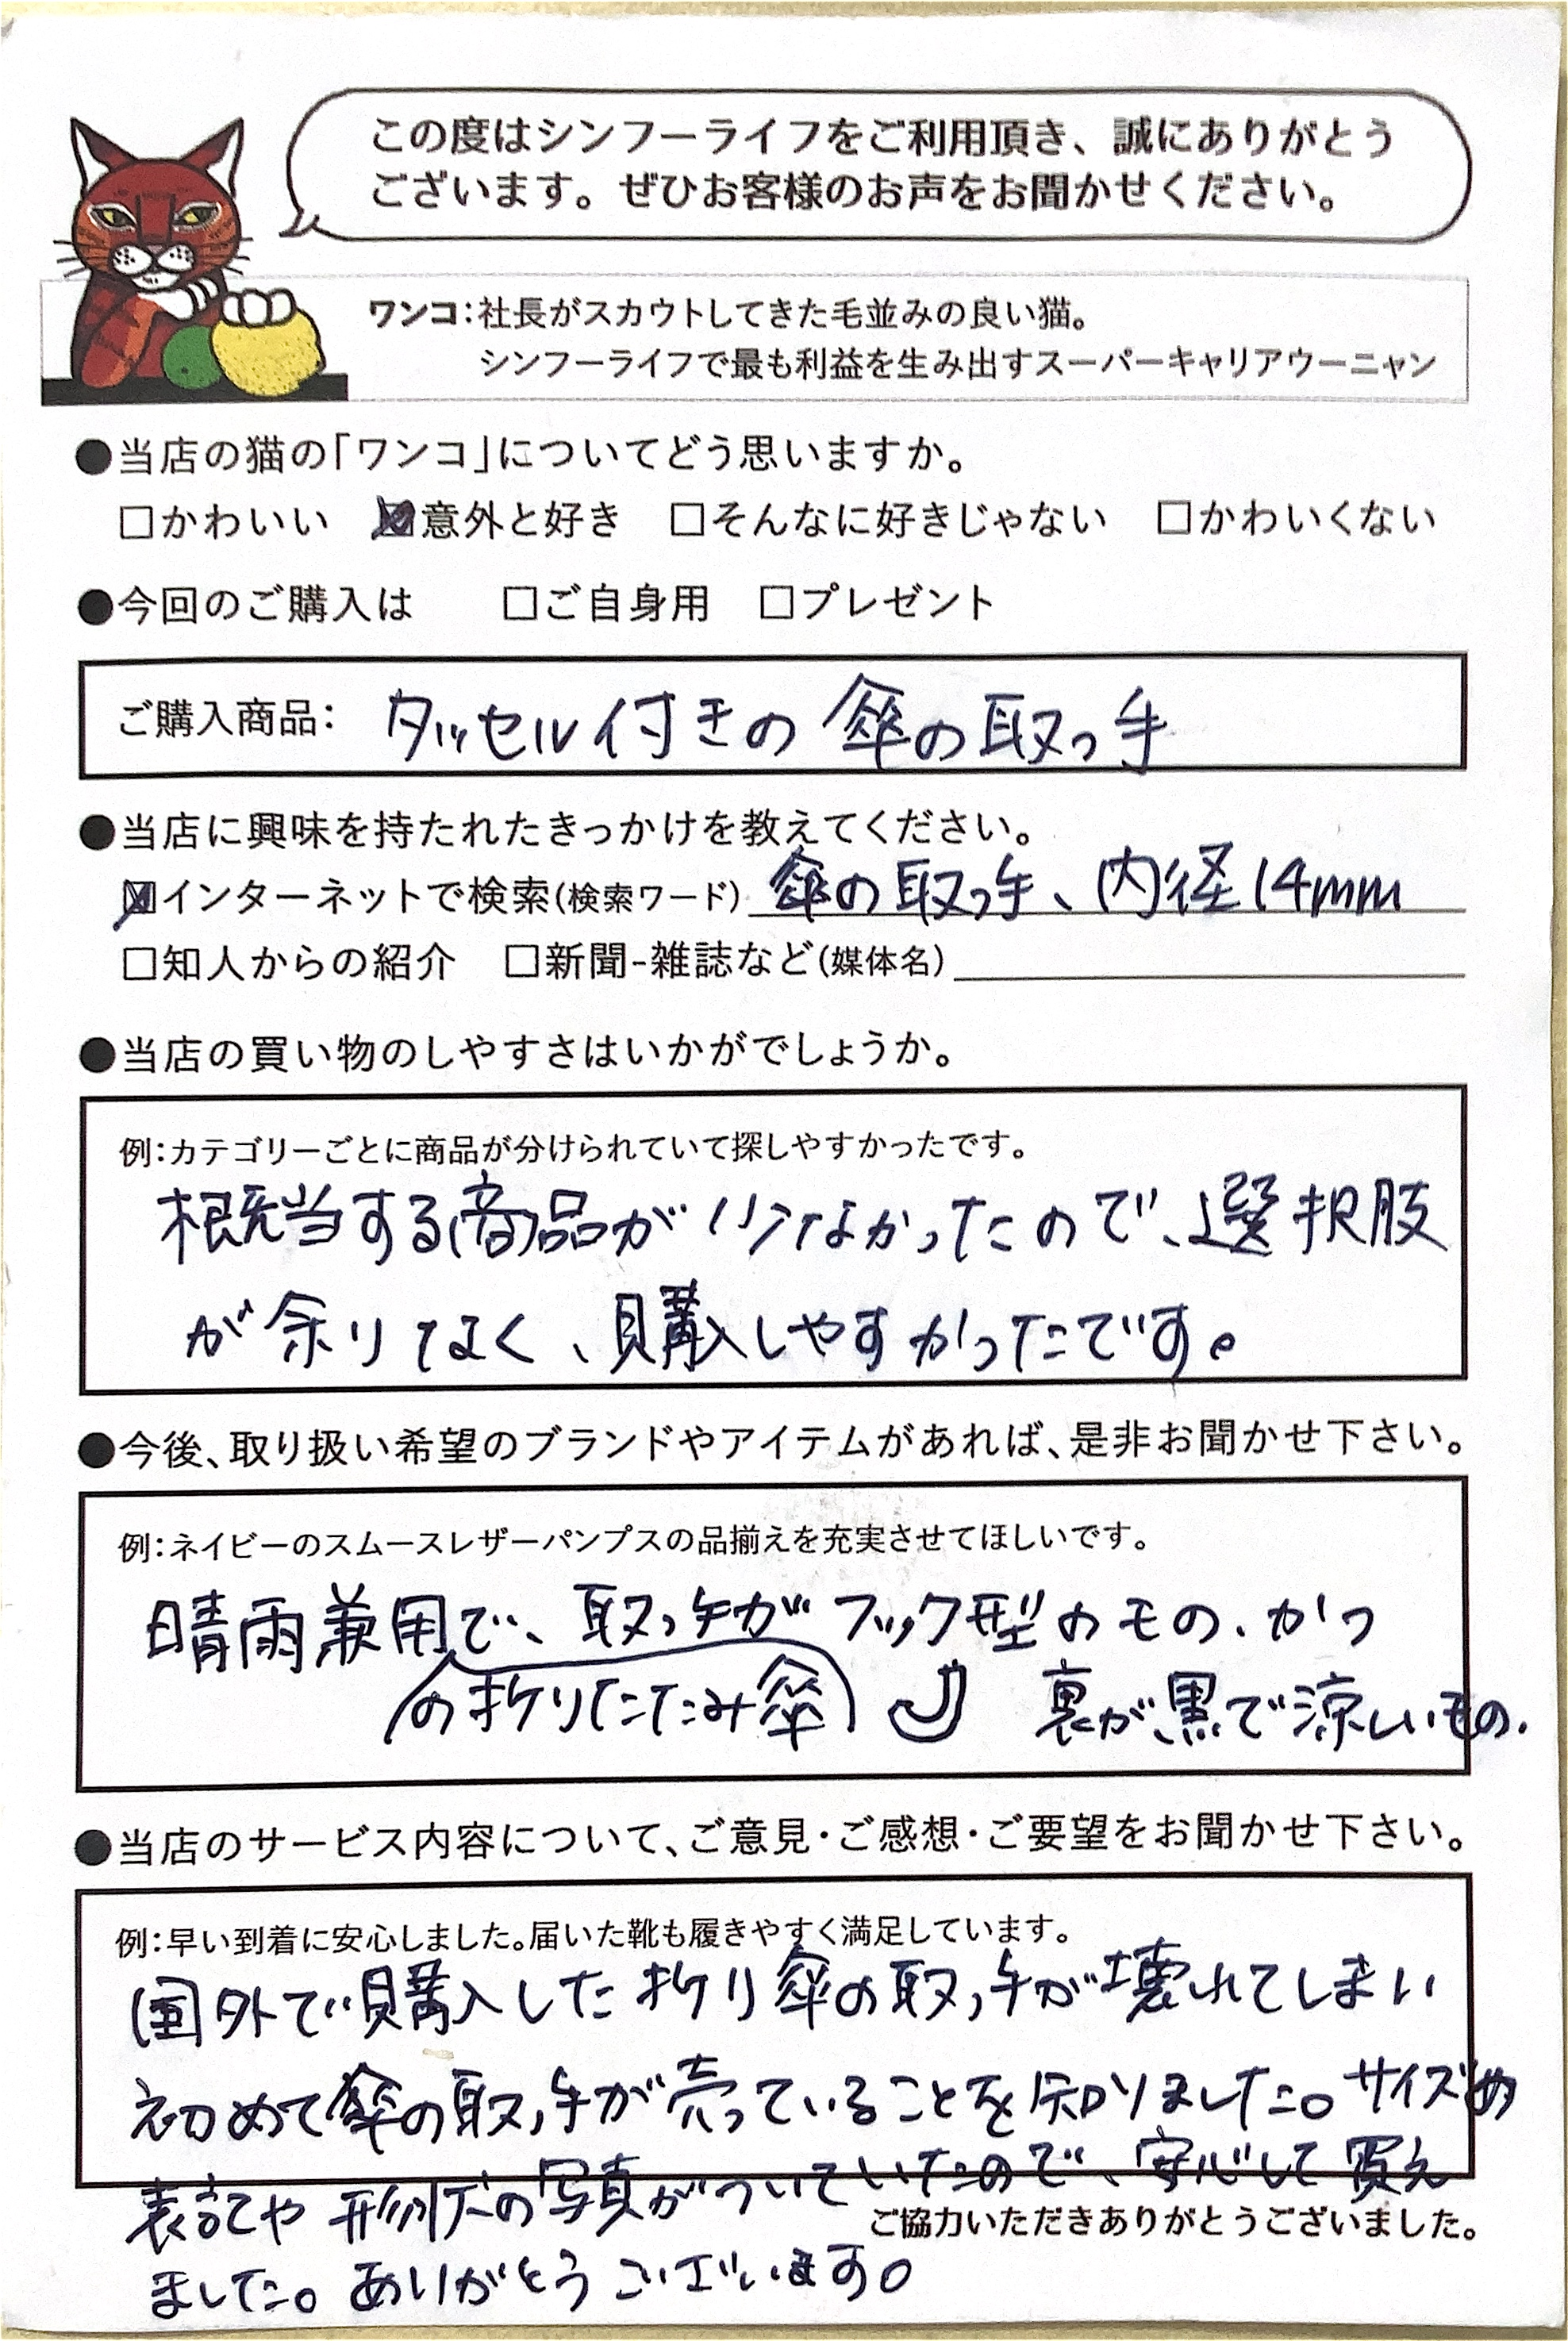 この度はシンフーライフをご利用頂き、誠にありがとう
ございます。ぜひお客様のお声をお聞かせください。
ワンコ：社長がスカウトしてきた毛並みの良い猫。
シンフーライフで最も利益を生み出すスーパーキャリアウーニャン
●当店の猫の「ワンコ」についてどう思いますか。
□かわいい ☑意外と好き □そんなに好きじゃない □かわいくない
●今回のご購入は □ご自身用 □プレゼント
ご購入商品： タッセル付きの傘の取っ手
●当店に興味を持たれたきっかけを教えてください。
☑インターネットで検索(検索ワード) 傘の取っ手、内径14mm
□知人からの紹介 □新聞-雑誌など(媒体名)
●当店の買い物のしやすさはいかがでしょうか。
例：カテゴリーごとに商品が分けられていて探しやすかったです。
当する商品が少なかったので、選択肢
が余りなく、購入しやすかったです。
●今後、取り扱い希望のブランドやアイテムがあれば、是非お聞かせ下さい。
例：ネイビーのスムースレザーパンプスの品揃えを充実させてほしいです。
晴雨兼用で、取っ手がフック型のもの、かつ
の折りたたみ傘 裏が黒で涼しいもの。
●当店のサービス内容について、ご意見・ご感想・ご要望をお聞かせ下さい。
例：早い到着に安心しました。届いた靴も履きやすく満足しています。
国外で購入した折り傘の取っ手が壊れてしまい
初めて傘の取っ手が売っていることを知りました。サイズの
表記や形状の写真がついていたので、安心して買え
ご協力いただきありがとうございました。
ました。ありがとうございます。